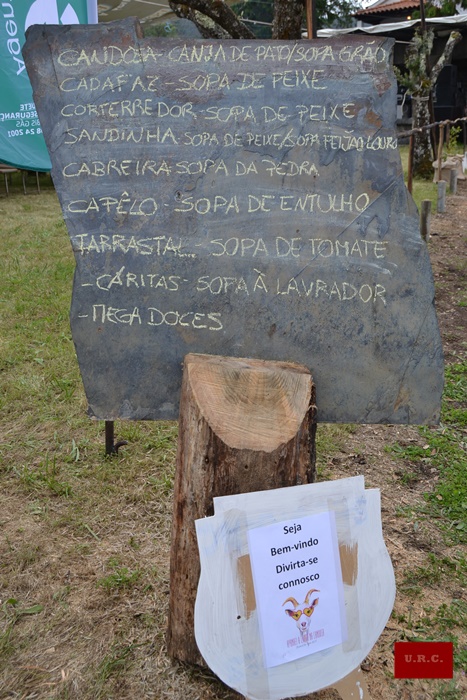 Agen
ETE
SEGURANÇA
CANDOSA - CANJA DE PATO/SOPA GRÃO
CADAFAZ - SOPA DE PEIXE
CORTERREDOR - SOPA DE PEIXE
SANDINHA - SOPA DE PEIXE/SOPA FEIJÃO LOURO
CABREIRA - SOPA DA PEDRA
CAPÊLO - SOPA DE ENTULHO
TARRASTAL - SOPA DE TOMATE
- CÁRITAS - SOPA À LAVRADOR
- MEGA DOCES
Seja
Bem-vindo
Divirta-se
connosco
U.R.C.